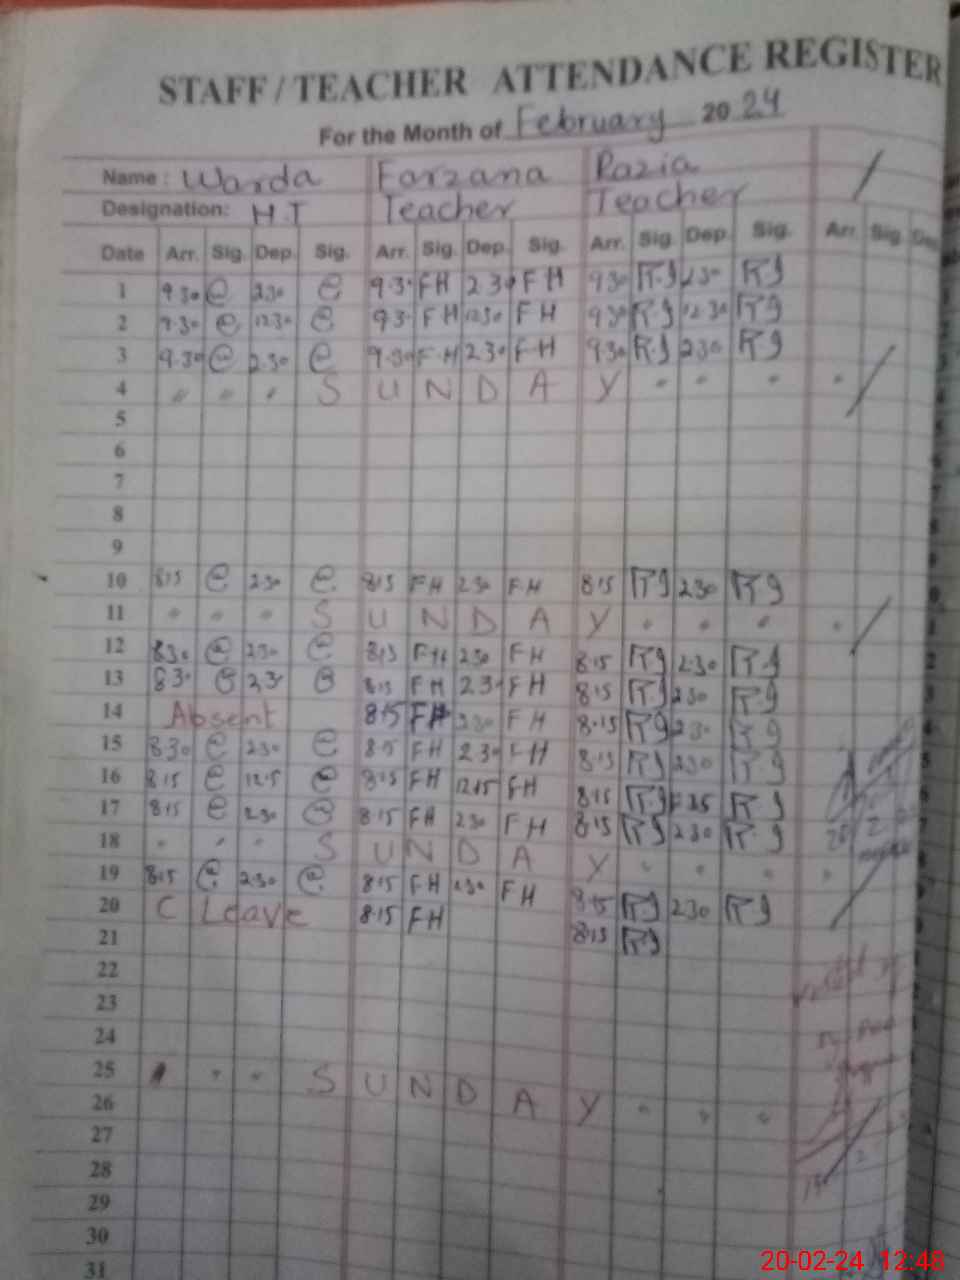 STAFF / TEACHER ATTENDANCE REGISTER
For the Month of February 2024
Name : Warda Farzana Razia
Designation: H.T Teacher Teacher
Date Arr. Sig. Dep. Sig. Arr. Sig. Dep. Sig. Arr. Sig. Dep. Sig. Arr. Sig. Dep
1 9.30 @ 2.30 @ 9.3. FH 2 30 FH 9 30 RJ 2.30 RJ
2 9.30 @ 12.30 @ 9 3. FH 12.30 FH 9 30 RJ 12.30 RJ
3 9.30 @ 2.30 @ 9.30 F.H 2.30 F.H 9.30 R.J 2.30 RJ
4 " " " S U N D A Y " " " "
5
6
7
8
9
10 8.15 @ 2.30 @ 8.15 FH 2.30 FH 8.15 RJ 2.30 RJ
11 " " " S U N D A Y " " " "
12 8.30 @ 2.30 @ 8.15 FH 2.30 FH 8.15 RJ 2.30 RJ
13 8.3. @ 2.3. @ 8.15 FH 2.3. FH 8.15 RJ 2.30 RJ
14 Absent 8.15 FH 2.30 FH 8.15 RJ 2.30 RJ
15 8.30 @ 2.30 @ 8.15 FH 2.30 FH 8.15 RJ 2.30 RJ
16 8.15 @ 12.15 @ 8.15 FH 12.15 FH 8.15 RJ RJ
17 8.15 @ 2.30 @ 8.15 FH 2.30 FH 8.15 RJ 2.30 RJ
18 " " " S U N D A Y " " " "
19 8.15 @ 2.30 @ 8.15 FH 2.30 FH 8.15 RJ 2.30 RJ
20 C Leave 8.15 FH 8.15 RJ
21
22
23
24
25 " " S U N D A Y " " "
26
27
28
29
30
31
20-02-24 12:48